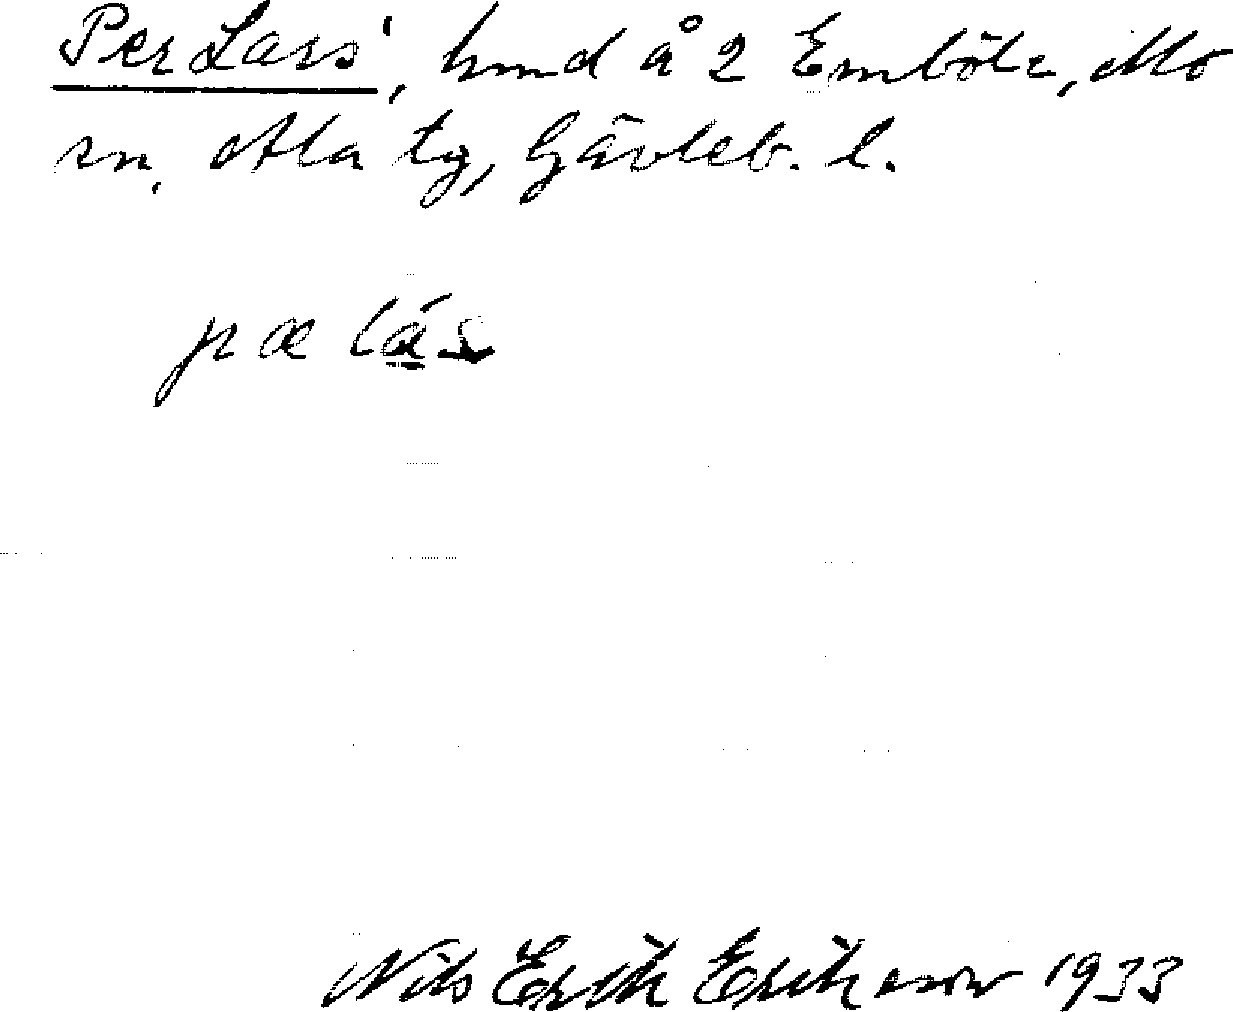 Per Lars', hmd å 2 Emböle, Mo
sn, Ala tg, Gävleb. l.
pæ lás
Nils Erik Eriksson 1933